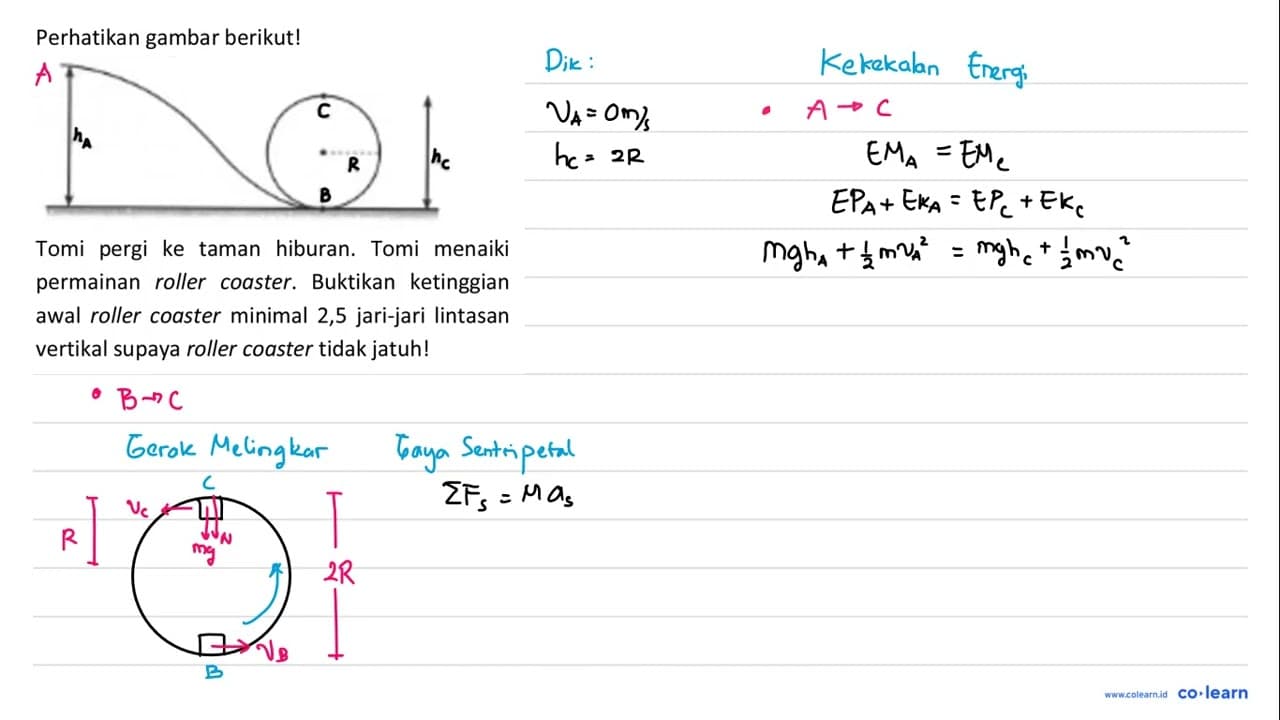 Perhatikan gambar berikut!
A
h_A
C
R
B
h_C
Tomi pergi ke taman hiburan. Tomi menaiki
permainan roller coaster. Buktikan ketinggian
awal roller coaster minimal 2,5 jari-jari lintasan
vertikal supaya roller coaster tidak jatuh!
Dik :
V_A = 0 m/s
h_C = 2R
Kekekalan Energi
• A → C
EM_A = EM_C
EP_A + EK_A = EP_C + EK_C
mgh_A + ½ mv_A² = mgh_C + ½ mv_C²
• B → C
Gerak Melingkar
Gaya Sentripetal
ΣF_s = m a_s
C
V_C
R
N
mg
2R
V_B
B
www.colearn.id co·learn